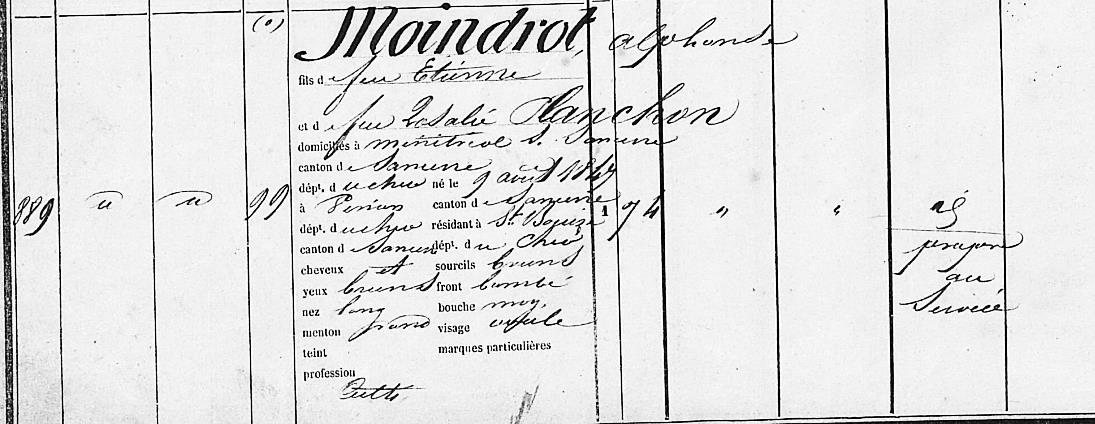 (0)
Moindrot, alphonse
fils d e feu Etienne
et d e feue Rosalie Planchon
domiciliés à menetreol s. Sancerre
canton d e Sancerre
dépt. d u cher né le 9 août 1847
à canton d e Sancerre
dépt. d u cher résidant à St. Bouize
canton d e Sancerre dépt. d u Cher
cheveux et sourcils bruns
yeux bruns front bombé
nez long bouche moy.
menton rond visage ovale
teint marques particulières
profession
Cult.
889 " " 99 1 74 " "
propre
au
Service